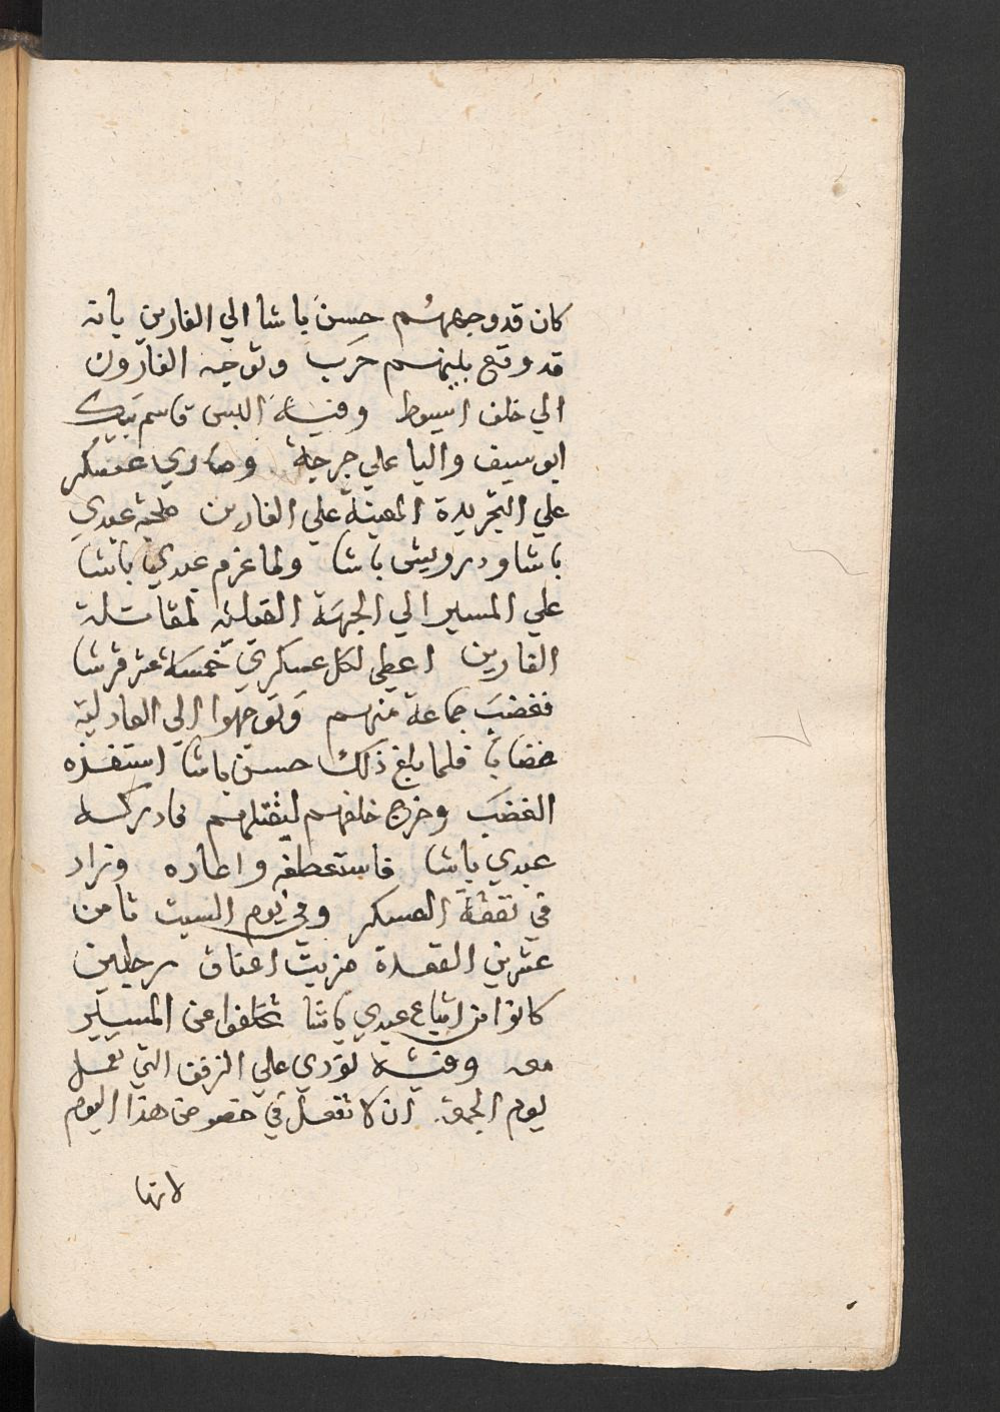 كان قد وجههُم حسن باشا الي الفارين بانه
قد وقع بينهم حرب وتوجه الفارون
الي خلف اسيوط وفيه البس قاسم بيك
ابو سيف واليا علي جرجة وصاري عسكر
علي التجريدة المعينة علي الفارين صحبة عبدي
باشا ودرويش باشا ولما عزم عبدي باشا
علي المسير الي الجهة القبلية لمقاتلة
الفارين اعطي لكل عسكري خمسة عشر قرشا
فغضب جماعة منهم وتوجهوا الي العادلية
غضابا فلما بلغ ذلك حسن باشا استفزه
الغضب وخرج خلفهم ليقتلهم فادركه
عبدي باشا فاستعطفه واعاده وزاد
في نفقة العسكر وفي يوم السبت ثامن
عشرين القعدة ضربت اعناق رجلين
كانوا من اتباع عبدي باشا تخلفوا عن المسير
معه وفيه نودي علي الزفف التي تعمل
يوم الجمعة ان لا تفعل في خصوص هذا اليوم
لانها